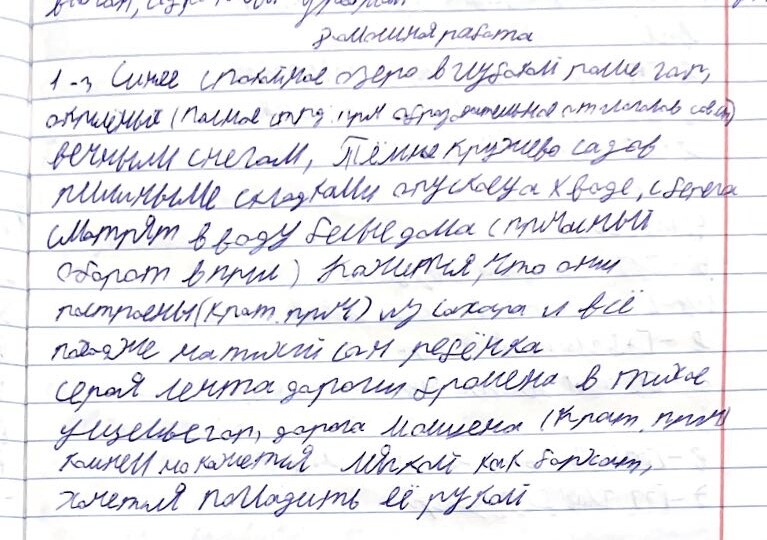 домашняя работа
1-з Синее спокойное озеро в глубокой раме гор,
окрылёных (полное страд. прич образовательное от глагола сов.в)
вечными снегом, Тёмне кружево садов
пышныме складками опускаеца к воде, с берега
смотрят в воду белые дома (причасный
оборот в прич) Кажится, что они
построены (крат. прич) из сахара и всё
похоже на тихий сон ребёнка
серая лента дороги брошена в тихое
ущелье гор, дорога мощена (крат. прич)
камнем но кажется мягкой как бархат,
хочется погладить её рукой